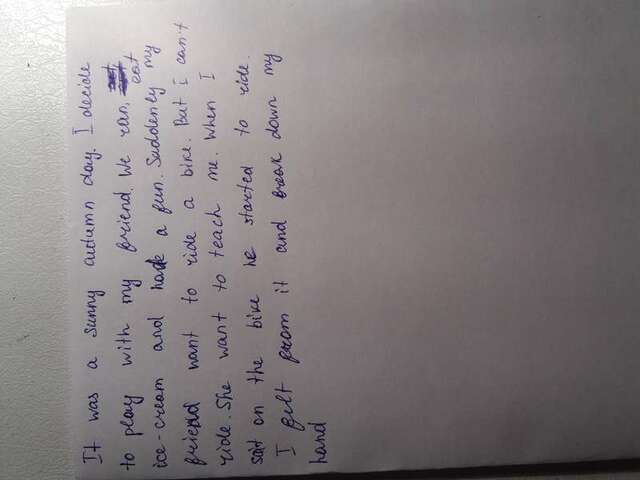 It was a sunny autumn day. I decide
to play with my friend. We ran, eat
ice-cream and have a fun. Suddenly my
friend want to ride a bike. But I can't
ride. She want to teach me. When I
sat on the bike he started to ride.
I felt from it and break down my
hand